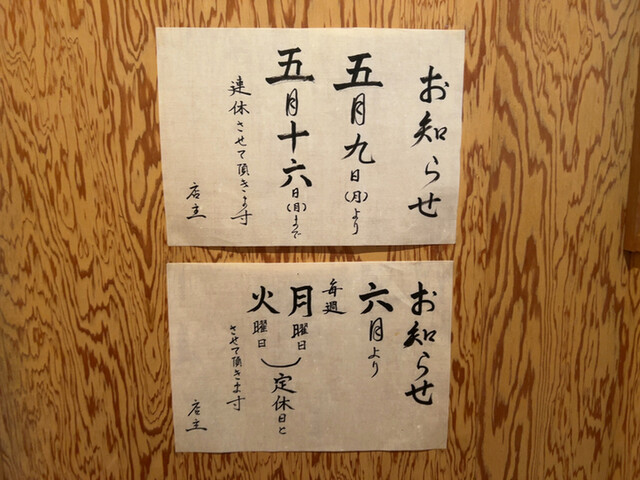 お知らせ
五月九日(月)より
五月十六日(月)まで
連休させて頂きます
店主
お知らせ
六月より
毎週
月曜日
火曜日
定休日と
させて頂きます
店主